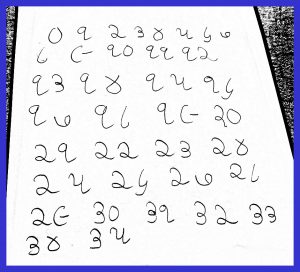 ૦ ૧ ૨ ૩ ૪ ૫ ૬ ૭
૮ ૯ ૧૦ ૧૧ ૧૨
૧૩ ૧૪ ૧૫ ૧૬
૧૭ ૧૮ ૧૯ ૨૦
૨૧ ૨૨ ૨૩ ૨૪
૨૫ ૨૬ ૨૭ ૨૮
૨૯ ૩૦ ૩૧ ૩૨ ૩૩
૩૪ ૩૫